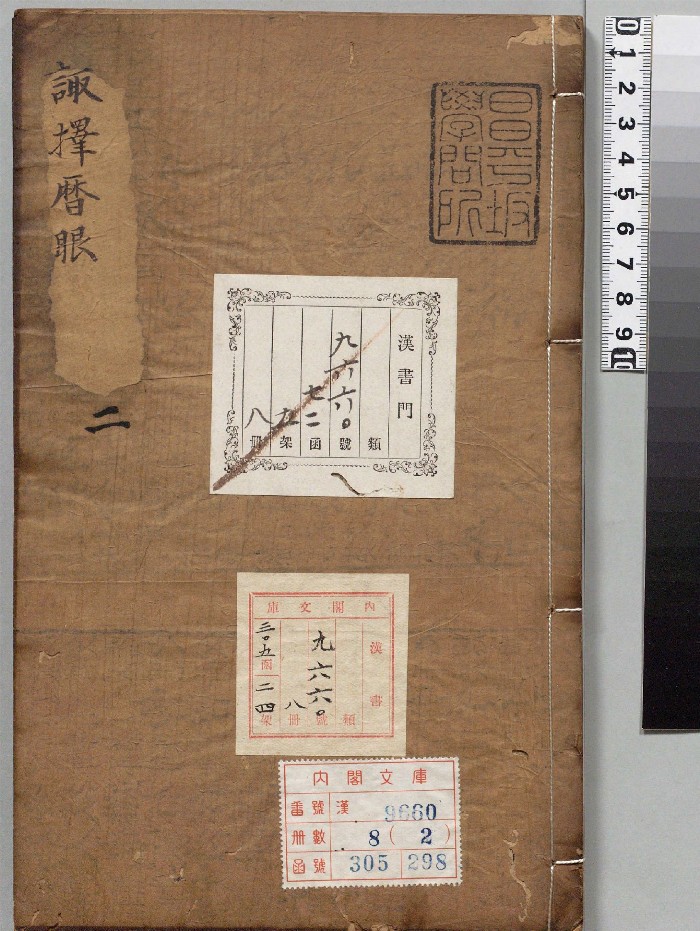 諏擇曆眼
二
昌平坂
學問所
漢書門
類
九六六〇號
七二函
五架
八冊
內閣文庫
漢書
類
九六六〇號
八冊
三〇五函
二四架
內閣文庫
番號 漢 9660
冊數 8 (2)
函號 305 298
0 1 2 3 4 5 6 7 8 9 10